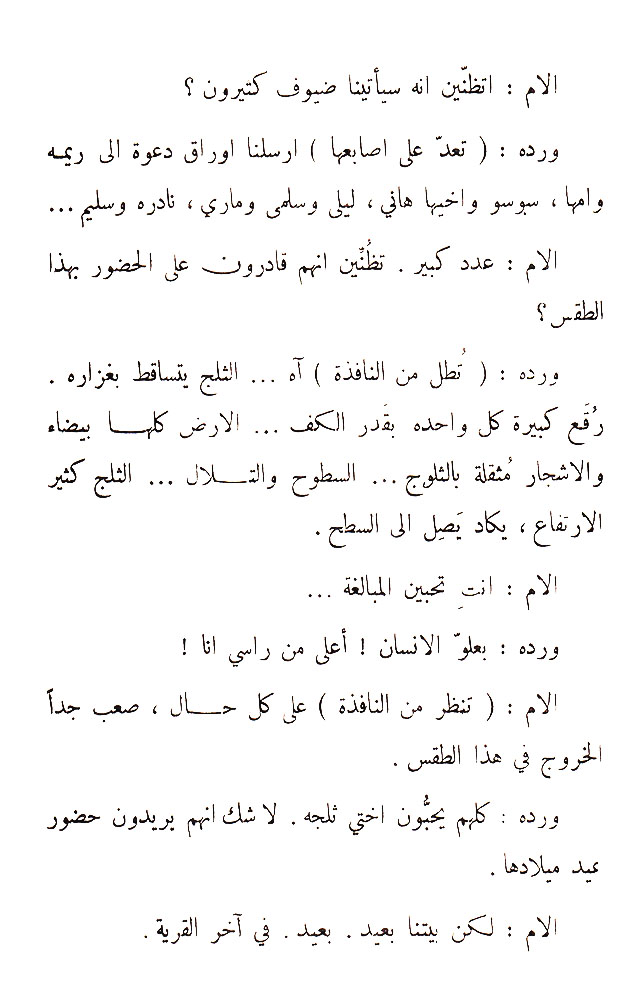 الام : اتظنّين انه سيأتينا ضيوف كثيرون ؟
ورده : ( تعدّ على اصابعها ) ارسلنا اوراق دعوة الى ريمه
وامها ، سوسو واخيها هاني ، ليلى وسلمى وماري ، نادره وسليم ...
الام : عدد كبير . تظُنّين انهم قادرون على الحضور بهذا
الطقس ؟
ورده : ( تُطل من النافذة ) آه ... الثلج يتساقط بغزاره .
رُقَع كبيرة كل واحده بقَدر الكف ... الارض كلهـا بيضاء
والاشجار مُثقلة بالثلوج ... السطوح والتــلال ... الثلج كثير
الارتفاع ، يكاد يَصِل الى السطح .
الام : انتِ تحبين المبالغة ...
ورده : بعلوّ الانسان ! أعلى من راسي انا !
الام : ( تنظر من النافذة ) على كل حــال ، صعب جداً
الخروج في هذا الطقس .
ورده : كلهم يحبُّون اختي ثلجه . لا شك انهم يريدون حضور
عيد ميلادها .
الام : لكن بيتنا بعيد . بعيد . في آخر القرية .